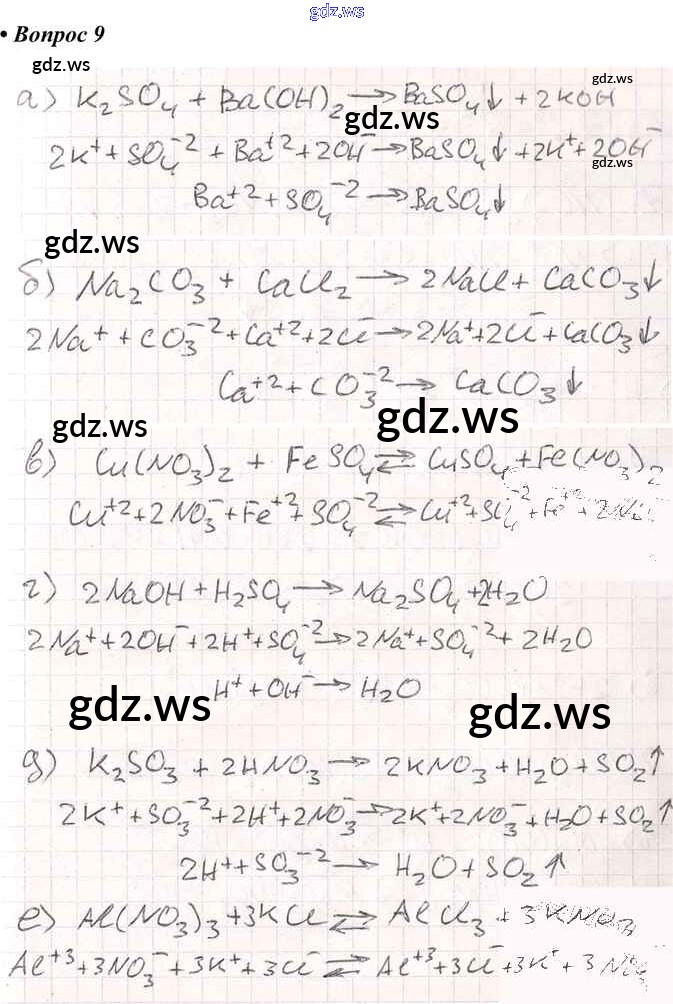 gdz.ws
• Вопрос 9
gdz.ws
gdz.ws
а) K₂SO₄ + Ba(OH)₂ → BaSO₄↓ + 2KOH
gdz.ws
2K⁺ + SO₄⁻² + Ba⁺² + 2OH⁻ → BaSO₄↓ + 2K⁺ + 2OH⁻
gdz.ws
Ba⁺² + SO₄⁻² → BaSO₄↓
gdz.ws
б) Na₂CO₃ + CaCl₂ → 2NaCl + CaCO₃↓
2Na⁺ + CO₃⁻² + Ca⁺² + 2Cl⁻ → 2Na⁺ + 2Cl⁻ + CaCO₃↓
Ca⁺² + CO₃⁻² → CaCO₃↓
gdz.ws
gdz.ws
в) Cu(NO₃)₂ + FeSO₄ ⇄ CuSO₄ + Fe(NO₃)₂
Cu⁺² + 2NO₃⁻ + Fe⁺² + SO₄⁻² ⇄ Cu⁺² + SO₄⁻² + Fe⁺² +
г) 2NaOH + H₂SO₄ → Na₂SO₄ + 2H₂O
2Na⁺ + 2OH⁻ + 2H⁺ + SO₄⁻² → 2Na⁺ + SO₄⁻² + 2H₂O
H⁺ + OH⁻ → H₂O
gdz.ws
gdz.ws
д) K₂SO₃ + 2HNO₃ → 2KNO₃ + H₂O + SO₂↑
2K⁺ + SO₃⁻² + 2H⁺ + 2NO₃⁻ → 2K⁺ + 2NO₃⁻ + H₂O + SO₂↑
2H⁺ + SO₃⁻² → H₂O + SO₂↑
е) Al(NO₃)₃ + 3KCl ⇄ AlCl₃ + 3KNO₃
Al⁺³ + 3NO₃⁻ + 3K⁺ + 3Cl⁻ ⇄ Al⁺³ + 3Cl⁻ + 3K⁺ +